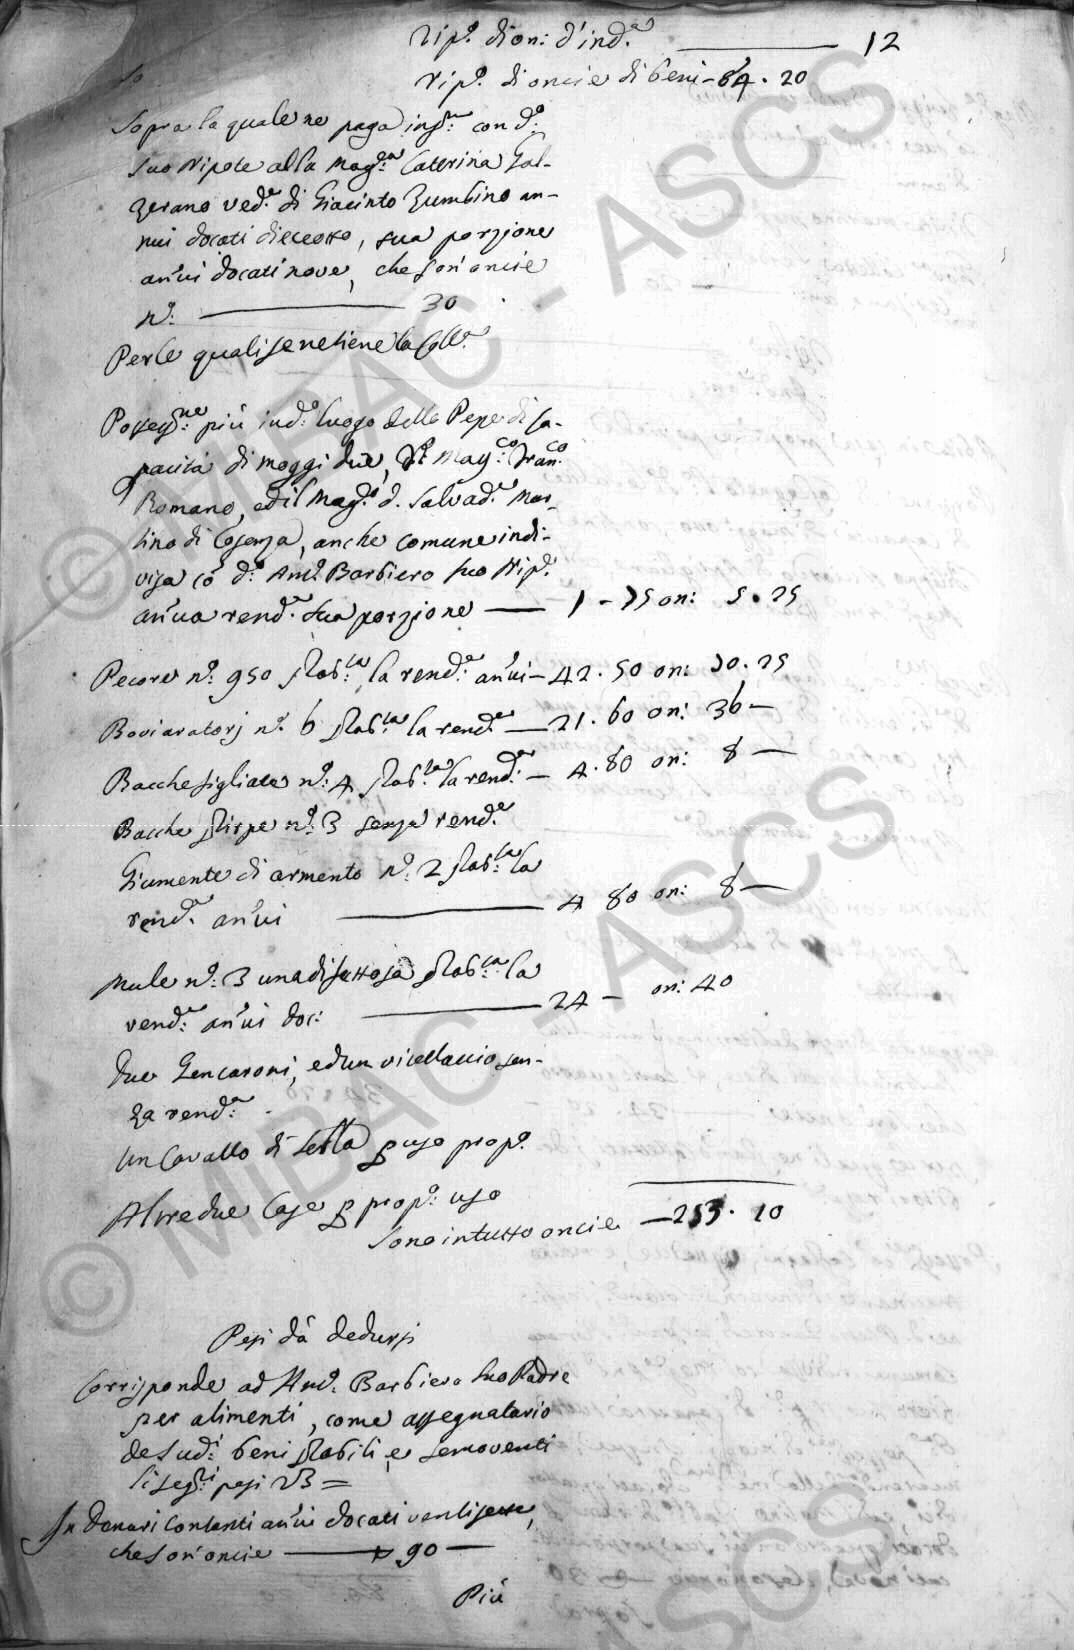 Rip.o di on: d'ind.a ——— 12
Rip.o di oncie di beni - 84. 20
Sopra la quale ne paga ins.me con d.o
suo Nipote alla Mag.ca Caterina Gal-
zerano ved.a di Giacinto Zumbino an-
nui docati dieceotto, sua porzione
an'ui docati nove, che son' oncie
n.o ——— 30
Per le quali se ne tiene la Coll.a
Possey.ne più in d.o luogo delle Pepe di ca-
pacità di moggi due, Mag.co Fran.co
Romano, ed il Mag.o d. Salvad.e Mar-
tino di Cosenza, anche comune indi-
visa co' d.o Ant.o Barbiero suo Nip.e
an'ua rend.a sua porzione —— 1 - 75 on: 5. 25
Pecore n.o 950 stab.ta la rend.a an'ui - 42. 50 on: 70. 25
Bovi aratorj n.o 6 stab.ta la rend.a — 21. 60 on: 36 —
Bacche figliate n.o 4 stab.ta la rend.a — 4. 80 on: 8 —
Bacche stirpe n.o 3 senza rend.a
Giumente di armento n.o 2 stab.ta la
rend.a an'ui ——— 4 80 on: 8 —
Mule n.o 3 una difettosa stab.ta la
rend.a an'ui doc: ——— 24 — on: 40
Due Gencaroni, ed un vitellaccio sen-
za rend.a
Un Cavallo di sella p uso prop.o
Altre due Case p prop.o uso
Sono in tutto oncie — 253. 10
Pesi da dedursi
Corrisponde ad Ant.o Barbiero suo Padre
per alimenti, come assegnatario
de sud.i beni stabili, e semoventi
li seg.ti pesi =
In denari contanti an'ui docati ventisette,
che son' oncie ——— 90 —
Più
© MIBAC - ASCS
© MIBAC - ASCS
ASCS